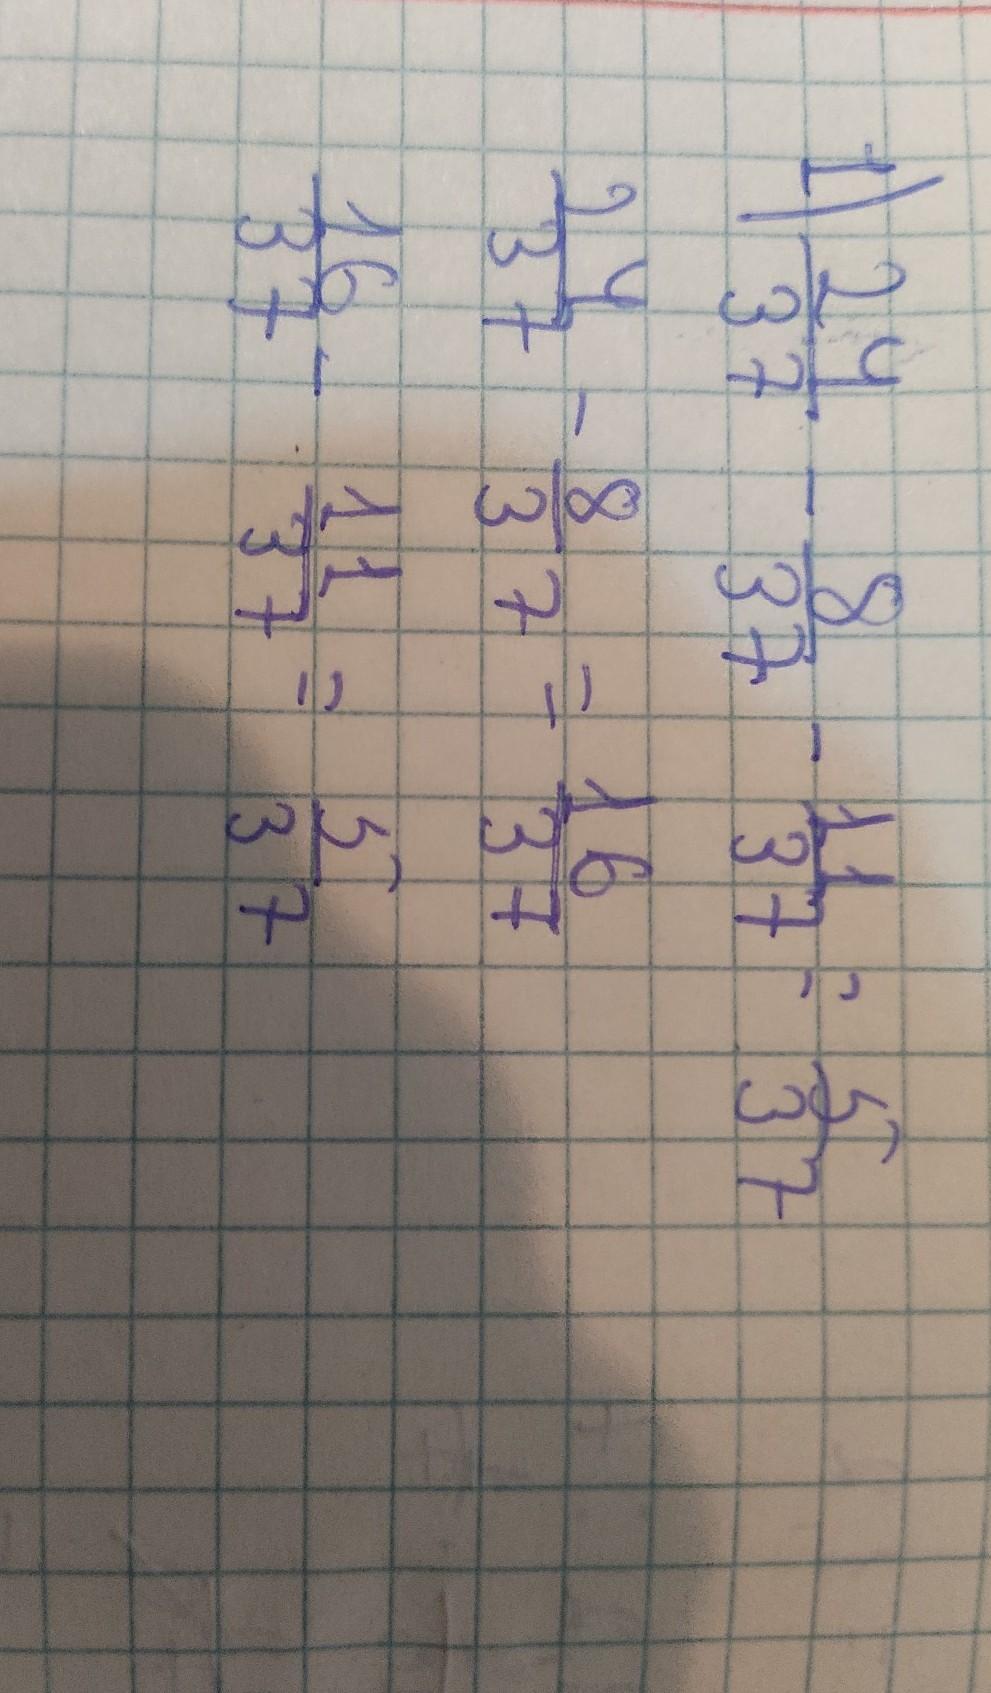 1) 24/37 - 8/37 - 11/37 = 5/37
24/37 - 8/37 = 16/37
16/37 - 11/37 = 5/37